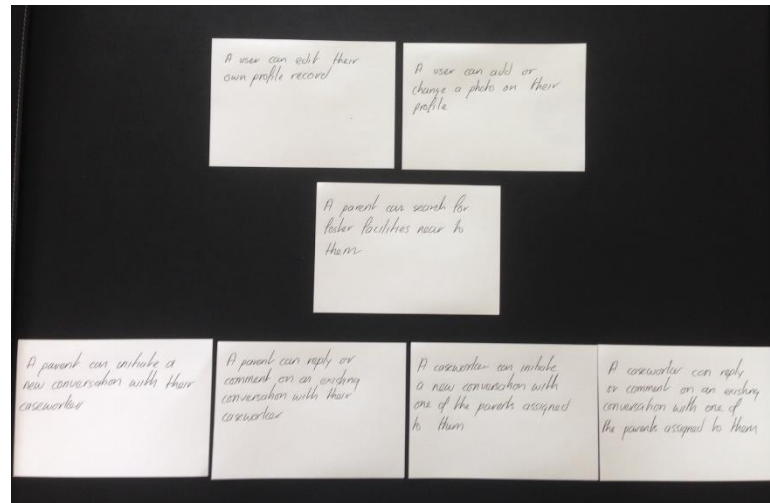 A user can edit their
own profile record
A user can add or
change a photo on their
profile
A parent can search for
foster facilities near to
them
A parent can initiate a
new conversation with their
caseworker
A parent can reply or
comment on an existing
conversation with their
caseworker
A caseworker can initiate
a new conversation with
one of the parents assigned
to them
A caseworker can reply
or comment on an existing
conversation with one of
the parents assigned to them